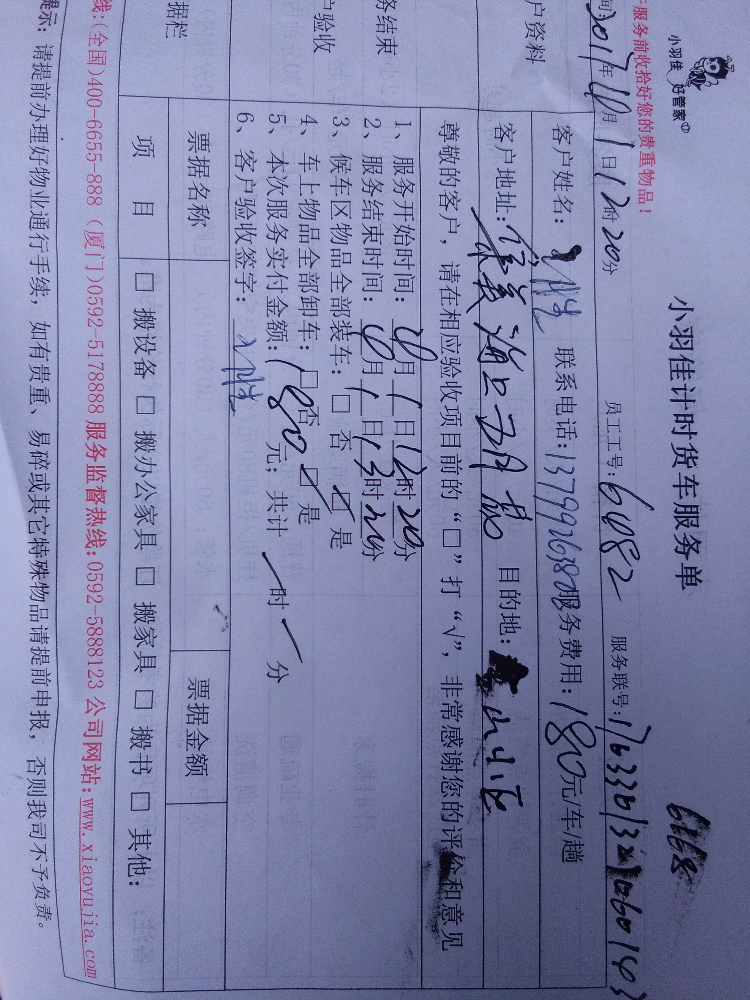 服务前收拾好您的贵重物品！
小羽佳 好管家
小羽佳计时货车服务单
6168
2017年10月1日12时20分 员工工号:6082 服务联号:
户资料
客户姓名: 联系电话: 服务费用:180元/车/趟
客户地址: 海上五月花 目的地: 山小区
尊敬的客户，请在相应验收项目前的“□”打“√”，非常感谢您的评价和意见
务结束
户验收
1、服务开始时间:10月1日12时20分
2、服务结束时间:10月1日13时20分
3、候车区物品全部装车: □ 否 ☑ 是
4、车上物品全部卸车: □ 否 ☑ 是
5、本次服务实付金额:180元；共计 / 时 / 分
6、客户验收签字:
据栏
票据名称 票据金额
项 目 □ 搬设备 □ 搬办公家具 □ 搬家具 □ 搬书 □ 其他:
线:(全国)400-6655-888 (厦门)0592-5178888 服务监督热线:0592-5888123 公司网站:www.xiaoyujia.com
提示: 请提前办理好物业通行手续；如有贵重、易碎或其它特殊物品请提前申报，否则我司不予负责。